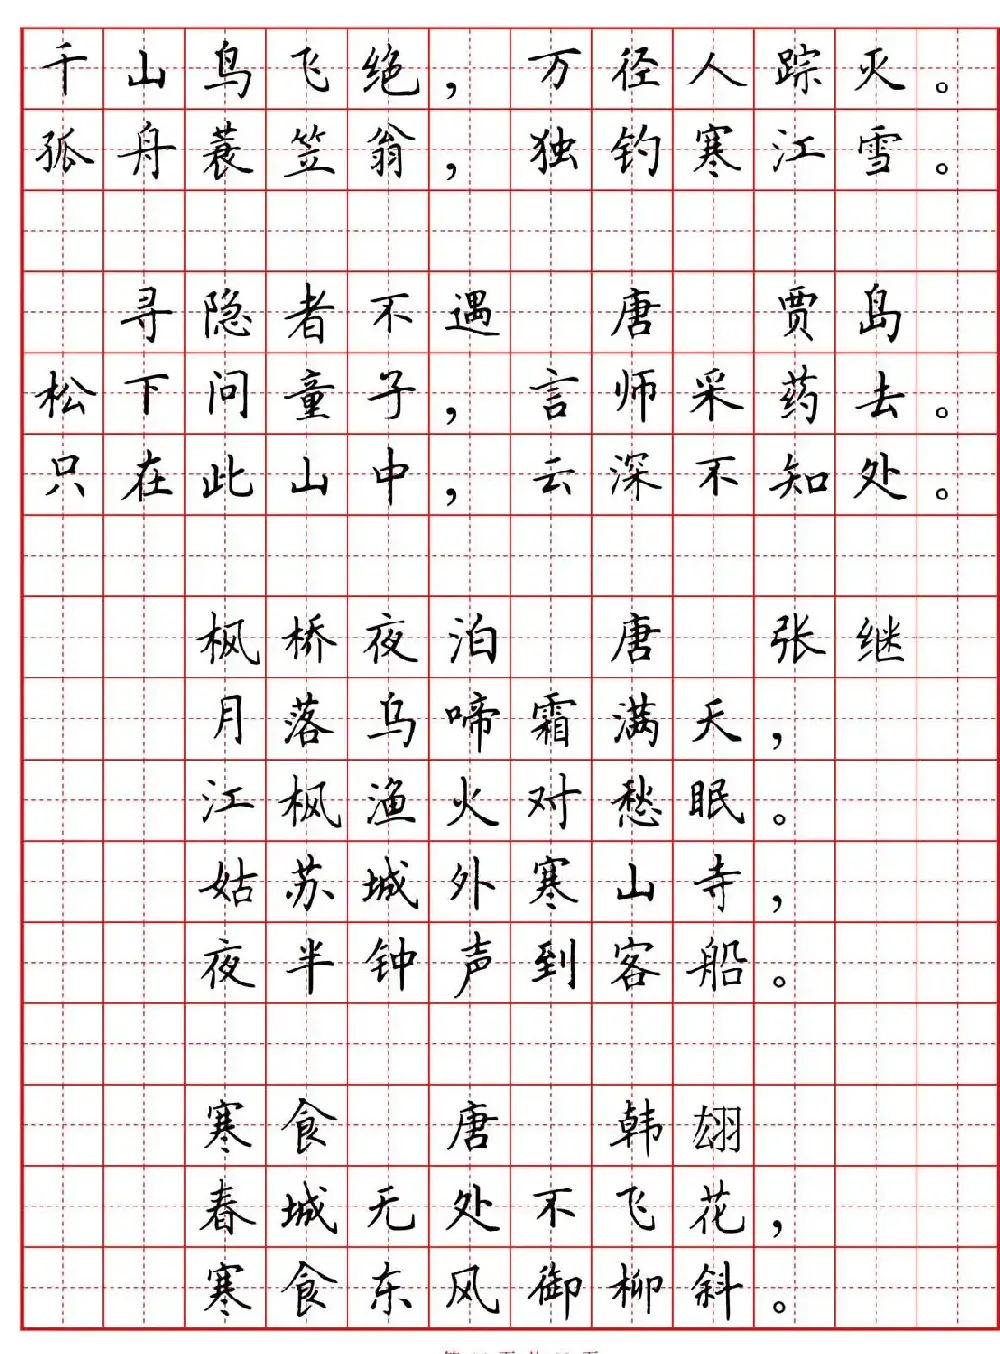 千山鸟飞绝，万径人踪灭。
孤舟蓑笠翁，独钓寒江雪。
寻隐者不遇 唐 贾岛
松下问童子，言师采药去。
只在此山中，云深不知处。
枫桥夜泊 唐 张继
月落乌啼霜满天，
江枫渔火对愁眠。
姑苏城外寒山寺，
夜半钟声到客船。
寒食 唐 韩翃
春城无处不飞花，
寒食东风御柳斜。